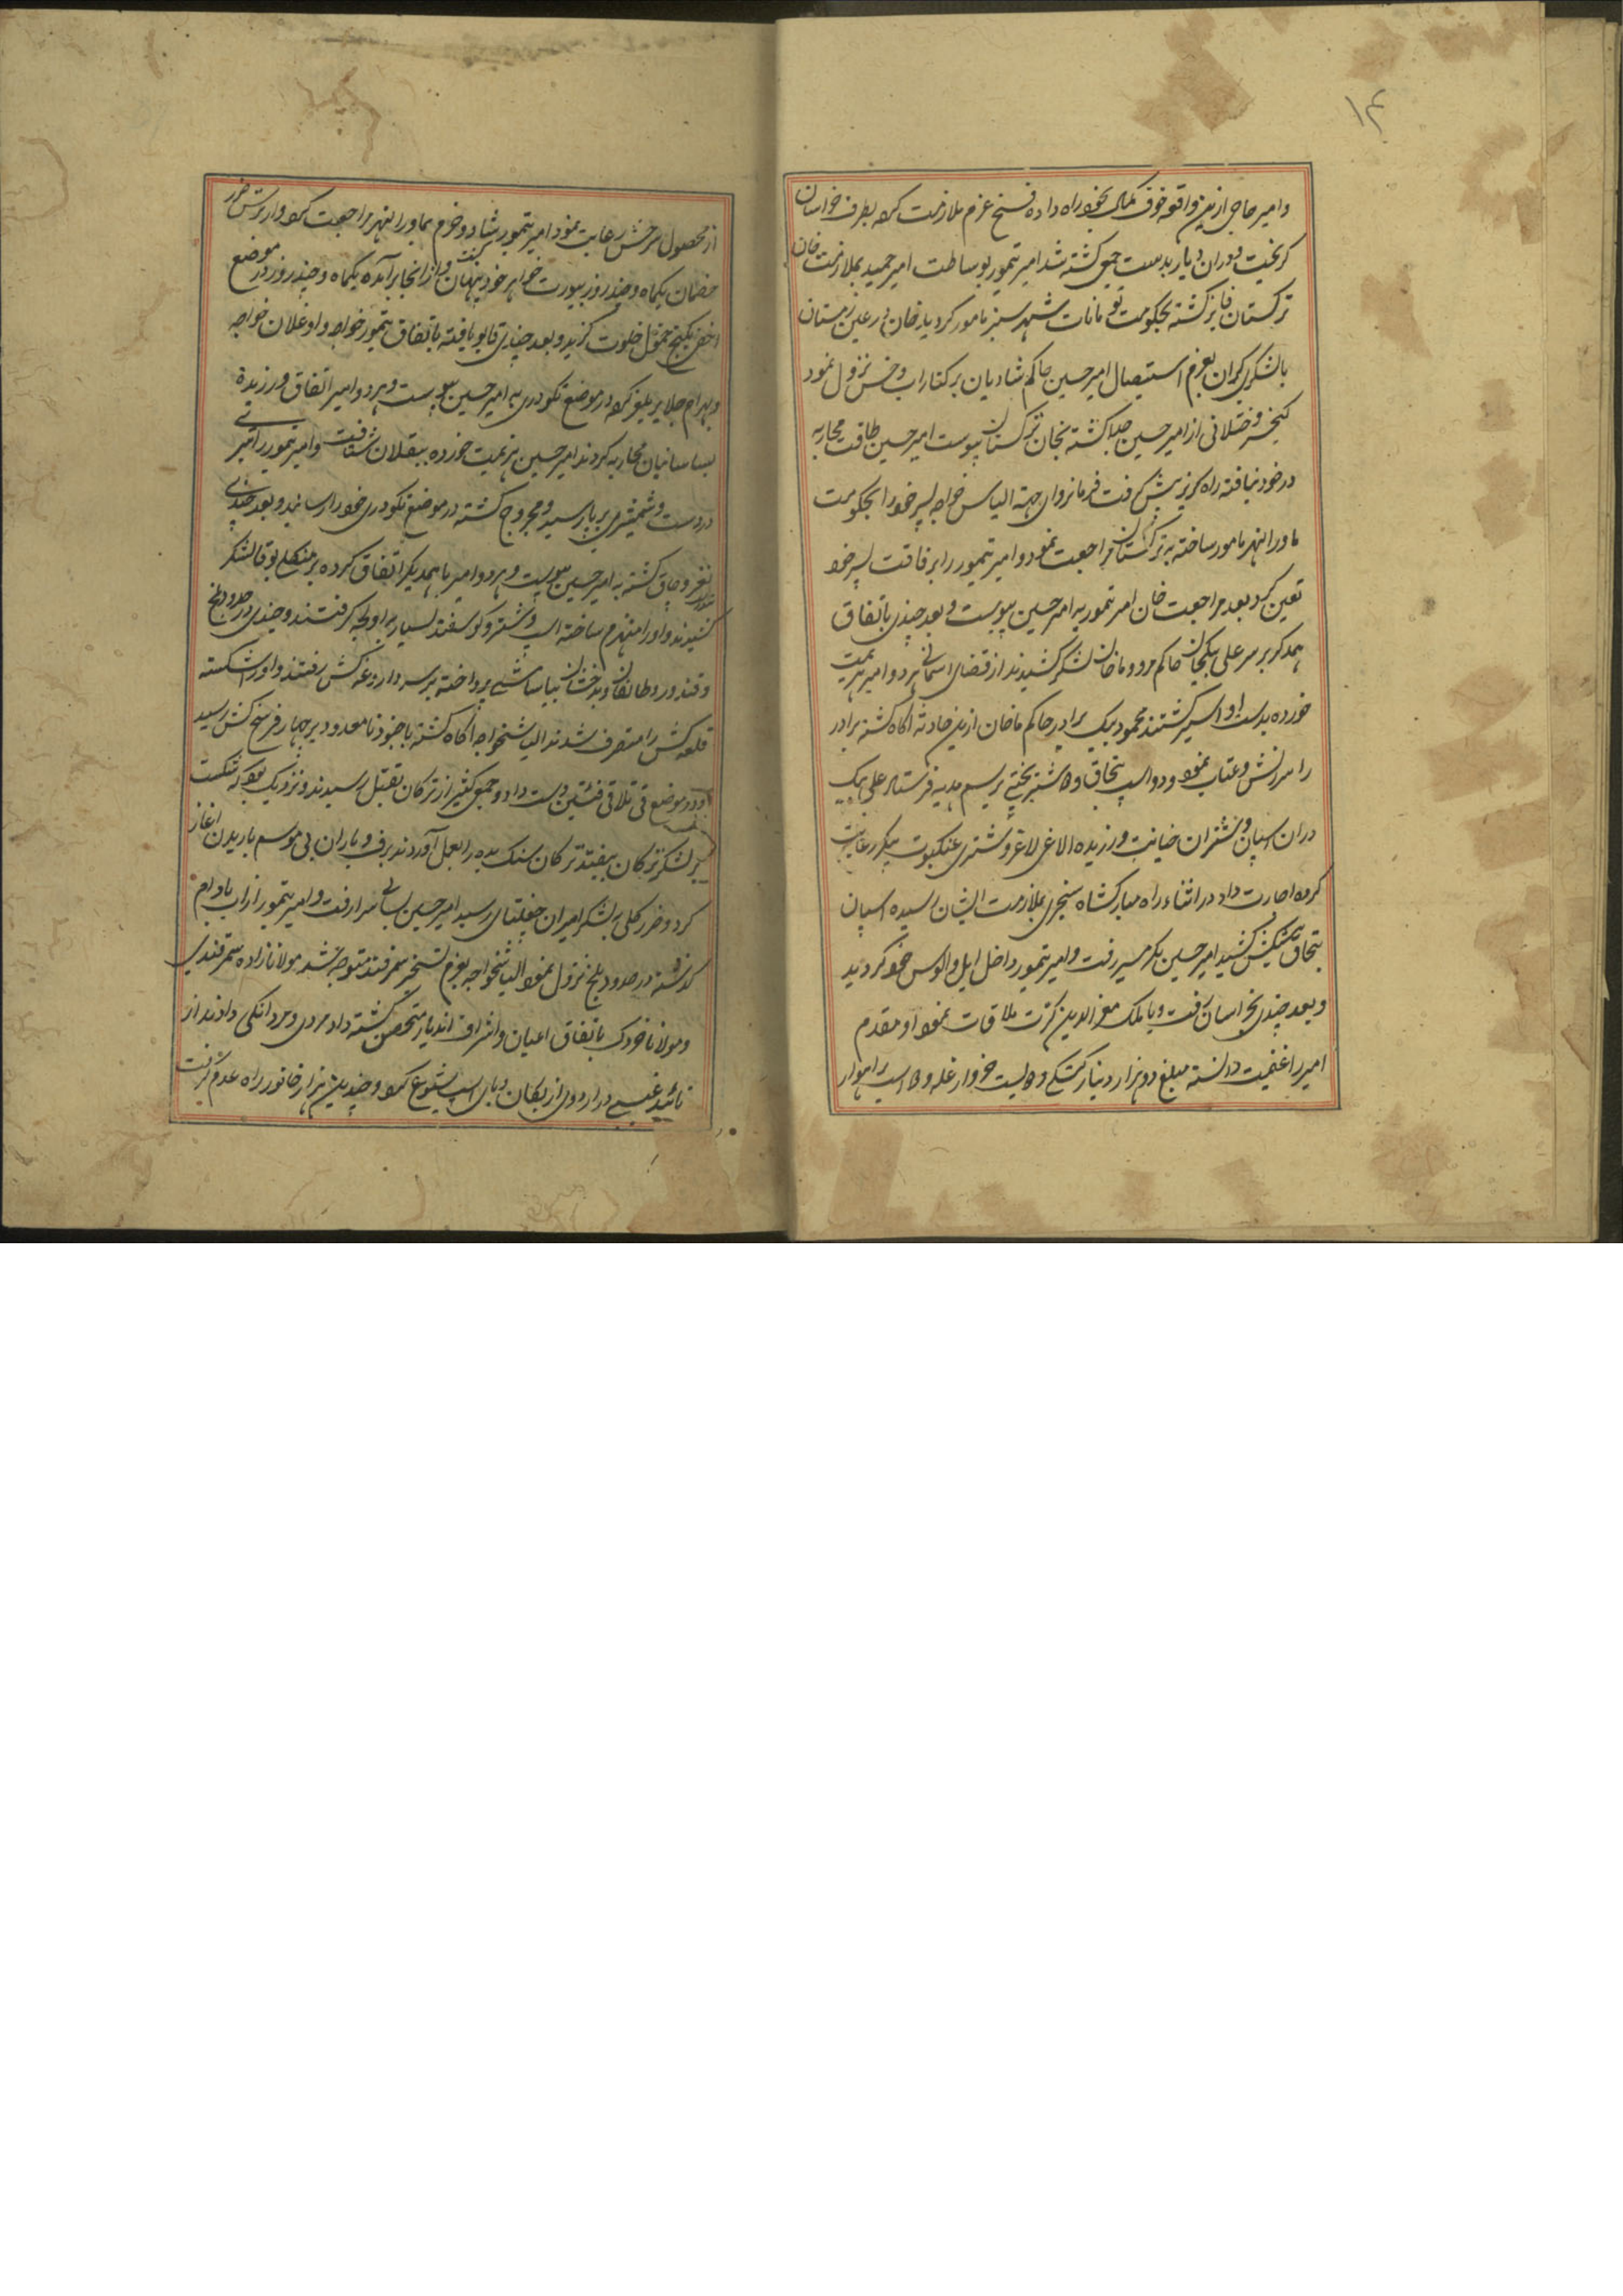 ۱۴
وامیر حاجی ازین واقعه خوف تمام بخود راه داده فسخ عزم ملازمت کرده بطرف خراسان
کریخت دوران دیار بدست جمعی کشته شد امیر تیمور بوساطت امیر حمید بملازمت خان
ترکستان فایز کشته بحکومت تومانات شهر سبز مامور کردید خان در عین زمستان
بالشکری کران بعزم استیصال امیر حسین حاکم شادیان بر کنار اب وخش نزول نمود
کیخسرو ختلانی از امیر حسین جدا کشته بخان ترکستان پیوست امیر حسین طاقت محاربه
در خود نیافته راه کریز پیش کرفت فرمانروای جته الیاس خواجه پسر خود را بحکومت
ماورالنهر مامور ساخته به ترکستان مراجعت نمود و امیر تیمور را برفاقت پسر خود
تعین کرد بعد مراجعت خان امیر تیمور به امیر حسین پیوست و بعد چندی باتفاق
همدکر بر سر علی بیکجان حاکم مرو و ماخان لشکر کشیدند از قضای اسمانی هر دو امیر هزیمت
خورده بدست او اسیر کشتند محمود بیک برادر حاکم ماخان ازین حادثه اکاه کشته برادر
را سرزنش و عتاب نمود و دو اسپ تبحاق و شتر بختی برسم هدیه فرستاد علی بیک
دران اسپان و شتران خیانت ورزیده الاغی لاغر و شتری عنکبوت پیکر رعایت
کرده اجازت داد در اثناء راه مبارکشاه سنجری بملازمت ایشان رسیده اسپان
تبحاق پیشکش کشید امیر حسین بکرمسیر رفت و امیر تیمور داخل ایل و الوس خود کردید
و بعد چندی بخراسان رفت و با ملک معز الدین کرت ملاقات نمود او مقدم
امیر را غنیمت دانسته مبلغ دو هزار دینار کپکی و دویست خروار غله و اسپ راهوار
از محصول سرخس رعایت نمود امیر تیمور شاد و خرم بماورالنهر مراجعت کرد و از ترس ضرر
خصمان یکماه و چند روز بیورت خواهر خود پنهان و از انجا برآمده یکماه و چند روز در موضع
اخفی بکنج خمول خلوت کزید و بعد چندی قابو یافته باتفاق تیمور خواجه و اوغلان خواجه
و بهرام جلایر یلیغر کرده در موضع نکودری به امیر حسین پیوست و هر دو امیر اتفاق ورزیده
بسیستانیان محاربه کردند امیر حسین هزیمت خورده ببقلان شتافت و امیر تیمور را تیر
در دست و شمشیری بر پا رسید و مجروح کشته در موضع نکودری خود را رسانید و بعد چندی
تندرو چاق کشته به امیر حسین پیوست و هر دو امیر باهمدیکر اتفاق کرده بر منکلی بوقا لشکر
کشیدند و او را منهزم ساخته اسپ و شتر و کوسفند بسیار به اولجه کرفتند و چندی در حدود بلخ
و قندوز و طالقان و بدخشان بیاسامیشی پرداخته بر سر داروغه کش رفتند و او را شکسته
قلعه کش را متصرف شدند الیاسخواجه اکاه کشته با جنود نامعدود بر چهار فرسخ کش رسید
و در موضع قی تلاقی فئتین دست داد و جمعی کثیر از ترکان بقتل رسیدند و نزدیک بود که شکست
بر لشکر ترکان بیفتد ترکان سنک یده را بعمل آوردند برف و باران بی موسم باریدن اغاز
کرد و ضرر کلی بلشکر امیران جغتای رسید امیر حسین بسالی سرا رفت و امیر تیمور از اب بادام
کذشته در حدود بلخ نزول نمود الیاسخواجه بعزم تسخیر سمرقند متوجه شد مولانا زاده سمرقندی
و مولانا خردک باتفاق اعیان و اشراف اندیار متحصن کشته داد مردی و مردانکی دادند از
تائید غیبی در اردوی ازبکان وبای اسپ شیوع کرد و چندین هزار جانور راه عدم کرفت